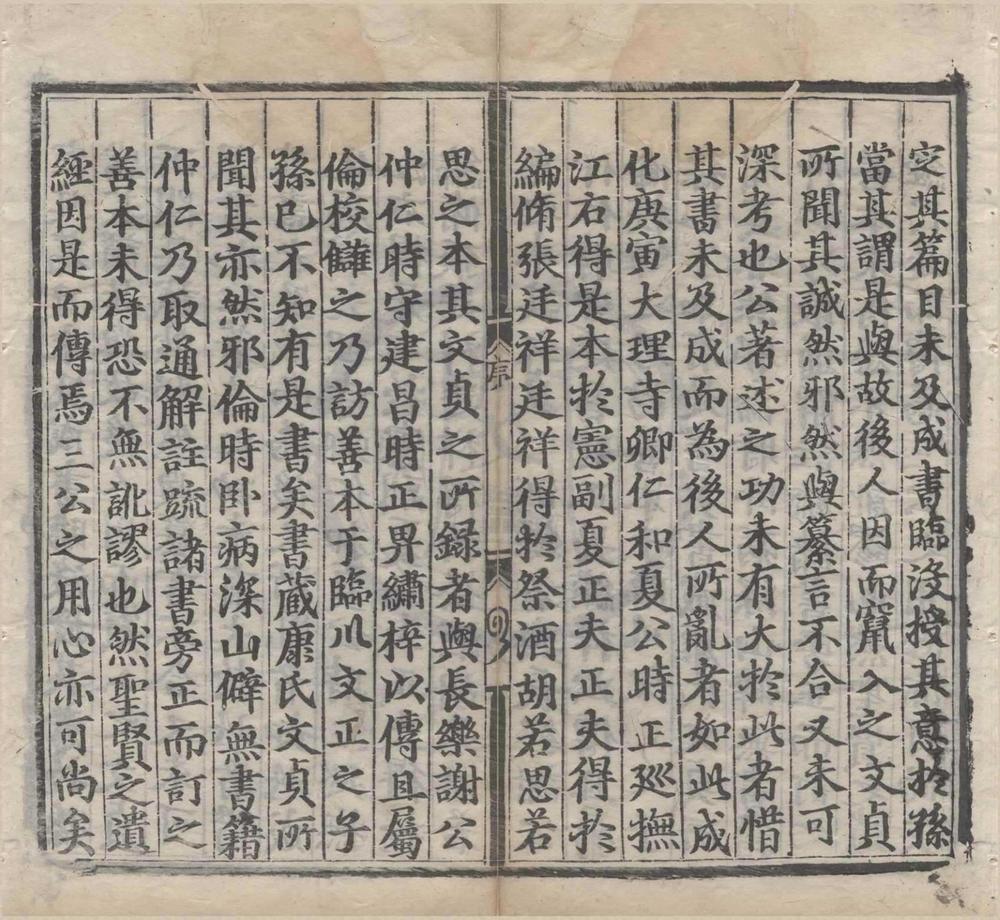 定其篇目未及成書臨没授其意於孫
當其謂是與故後人因而竄入之文貞
所聞其誠然邪然與纂言不合又未可
深考也公著述之功未有大於此者惜
其書未及成而為後人所亂者如此成
化庚寅大理寺卿仁和夏公時正廵撫
江右得是本於憲副夏正夫正夫得於
編脩張廷祥廷祥得於祭酒胡若思若
序
思之本其文貞之所録者與長樂謝公
仲仁時守建昌時正畀繡梓以傳且屬
倫校讎之乃訪善本于臨川文正之子
孫已不知有是書矣書蔵康氏文貞所
聞其亦然邪倫時卧病深山僻無書籍
仲仁乃取通解註䟽諸書旁正而訂之
善本未得恐不無訛謬也然聖賢之遺
經因是而傳焉三公之用心亦可尚矣